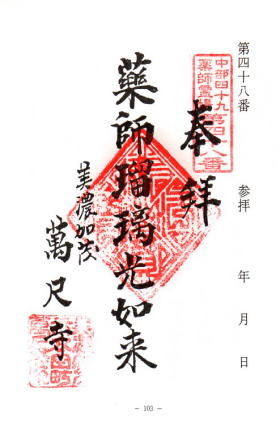 第四十八番 参拝 年 月 日
中部四十九
薬師霊場第四十八番
奉拝
藥師瑠璃光如来
美濃加茂
萬尺寺
- 103 -